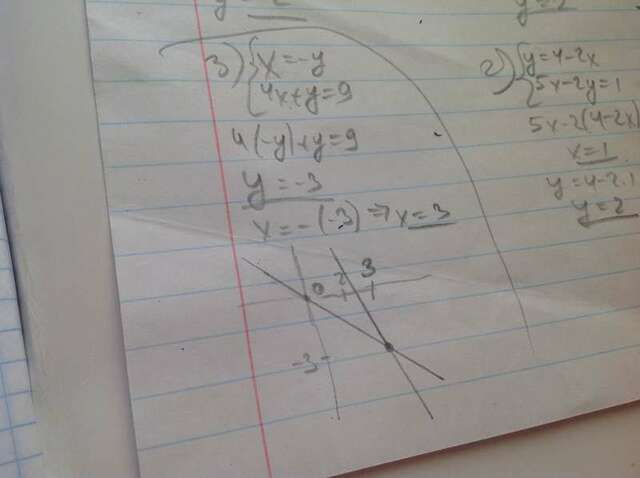 y=2
3) { x=-y
4x+y=9
4(-y)+y=9
y=-3
x=-(-3) → x=3
0 2 3
-3
y=2
2) { y=4-2x
5x-2y=1
5x-2(4-2x)
x=1
y=4-2.1
y=2